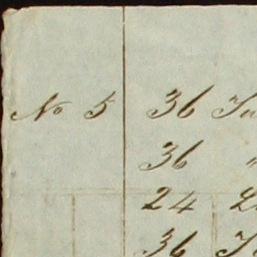 No 5 36
36 "
24
36